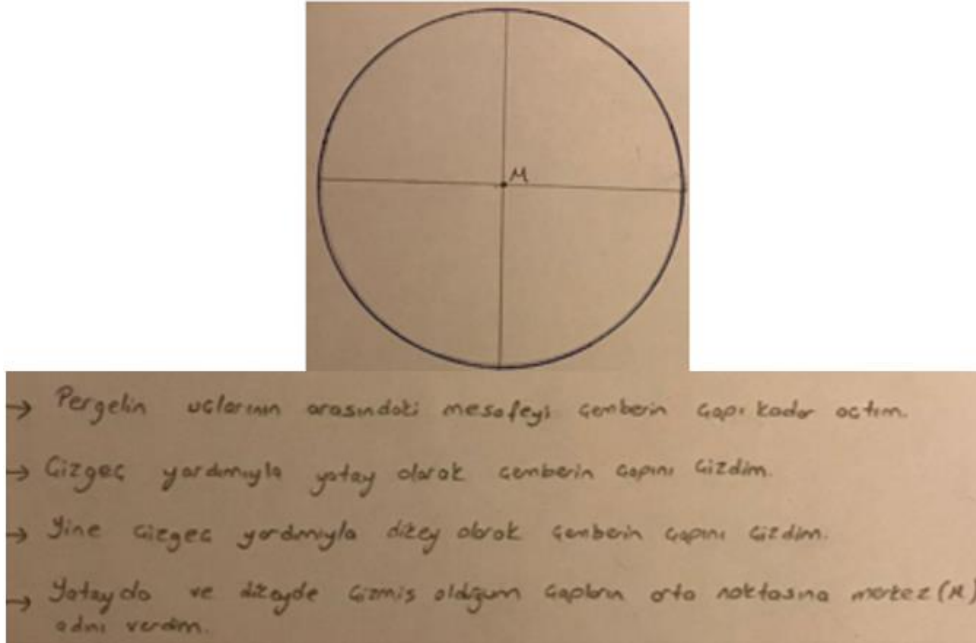 M
→ Pergelin uçlarının arasındaki mesafeyi çemberin çapı kadar açtım.
→ Çizgeç yardımıyla yatay olarak çemberin çapını çizdim.
→ Yine çizgeç yardımıyla dikey olarak çemberin çapını çizdim.
→ Yatayda ve dikeyde çizmiş olduğum çapların orta noktasına merkez (M)
adını verdim.